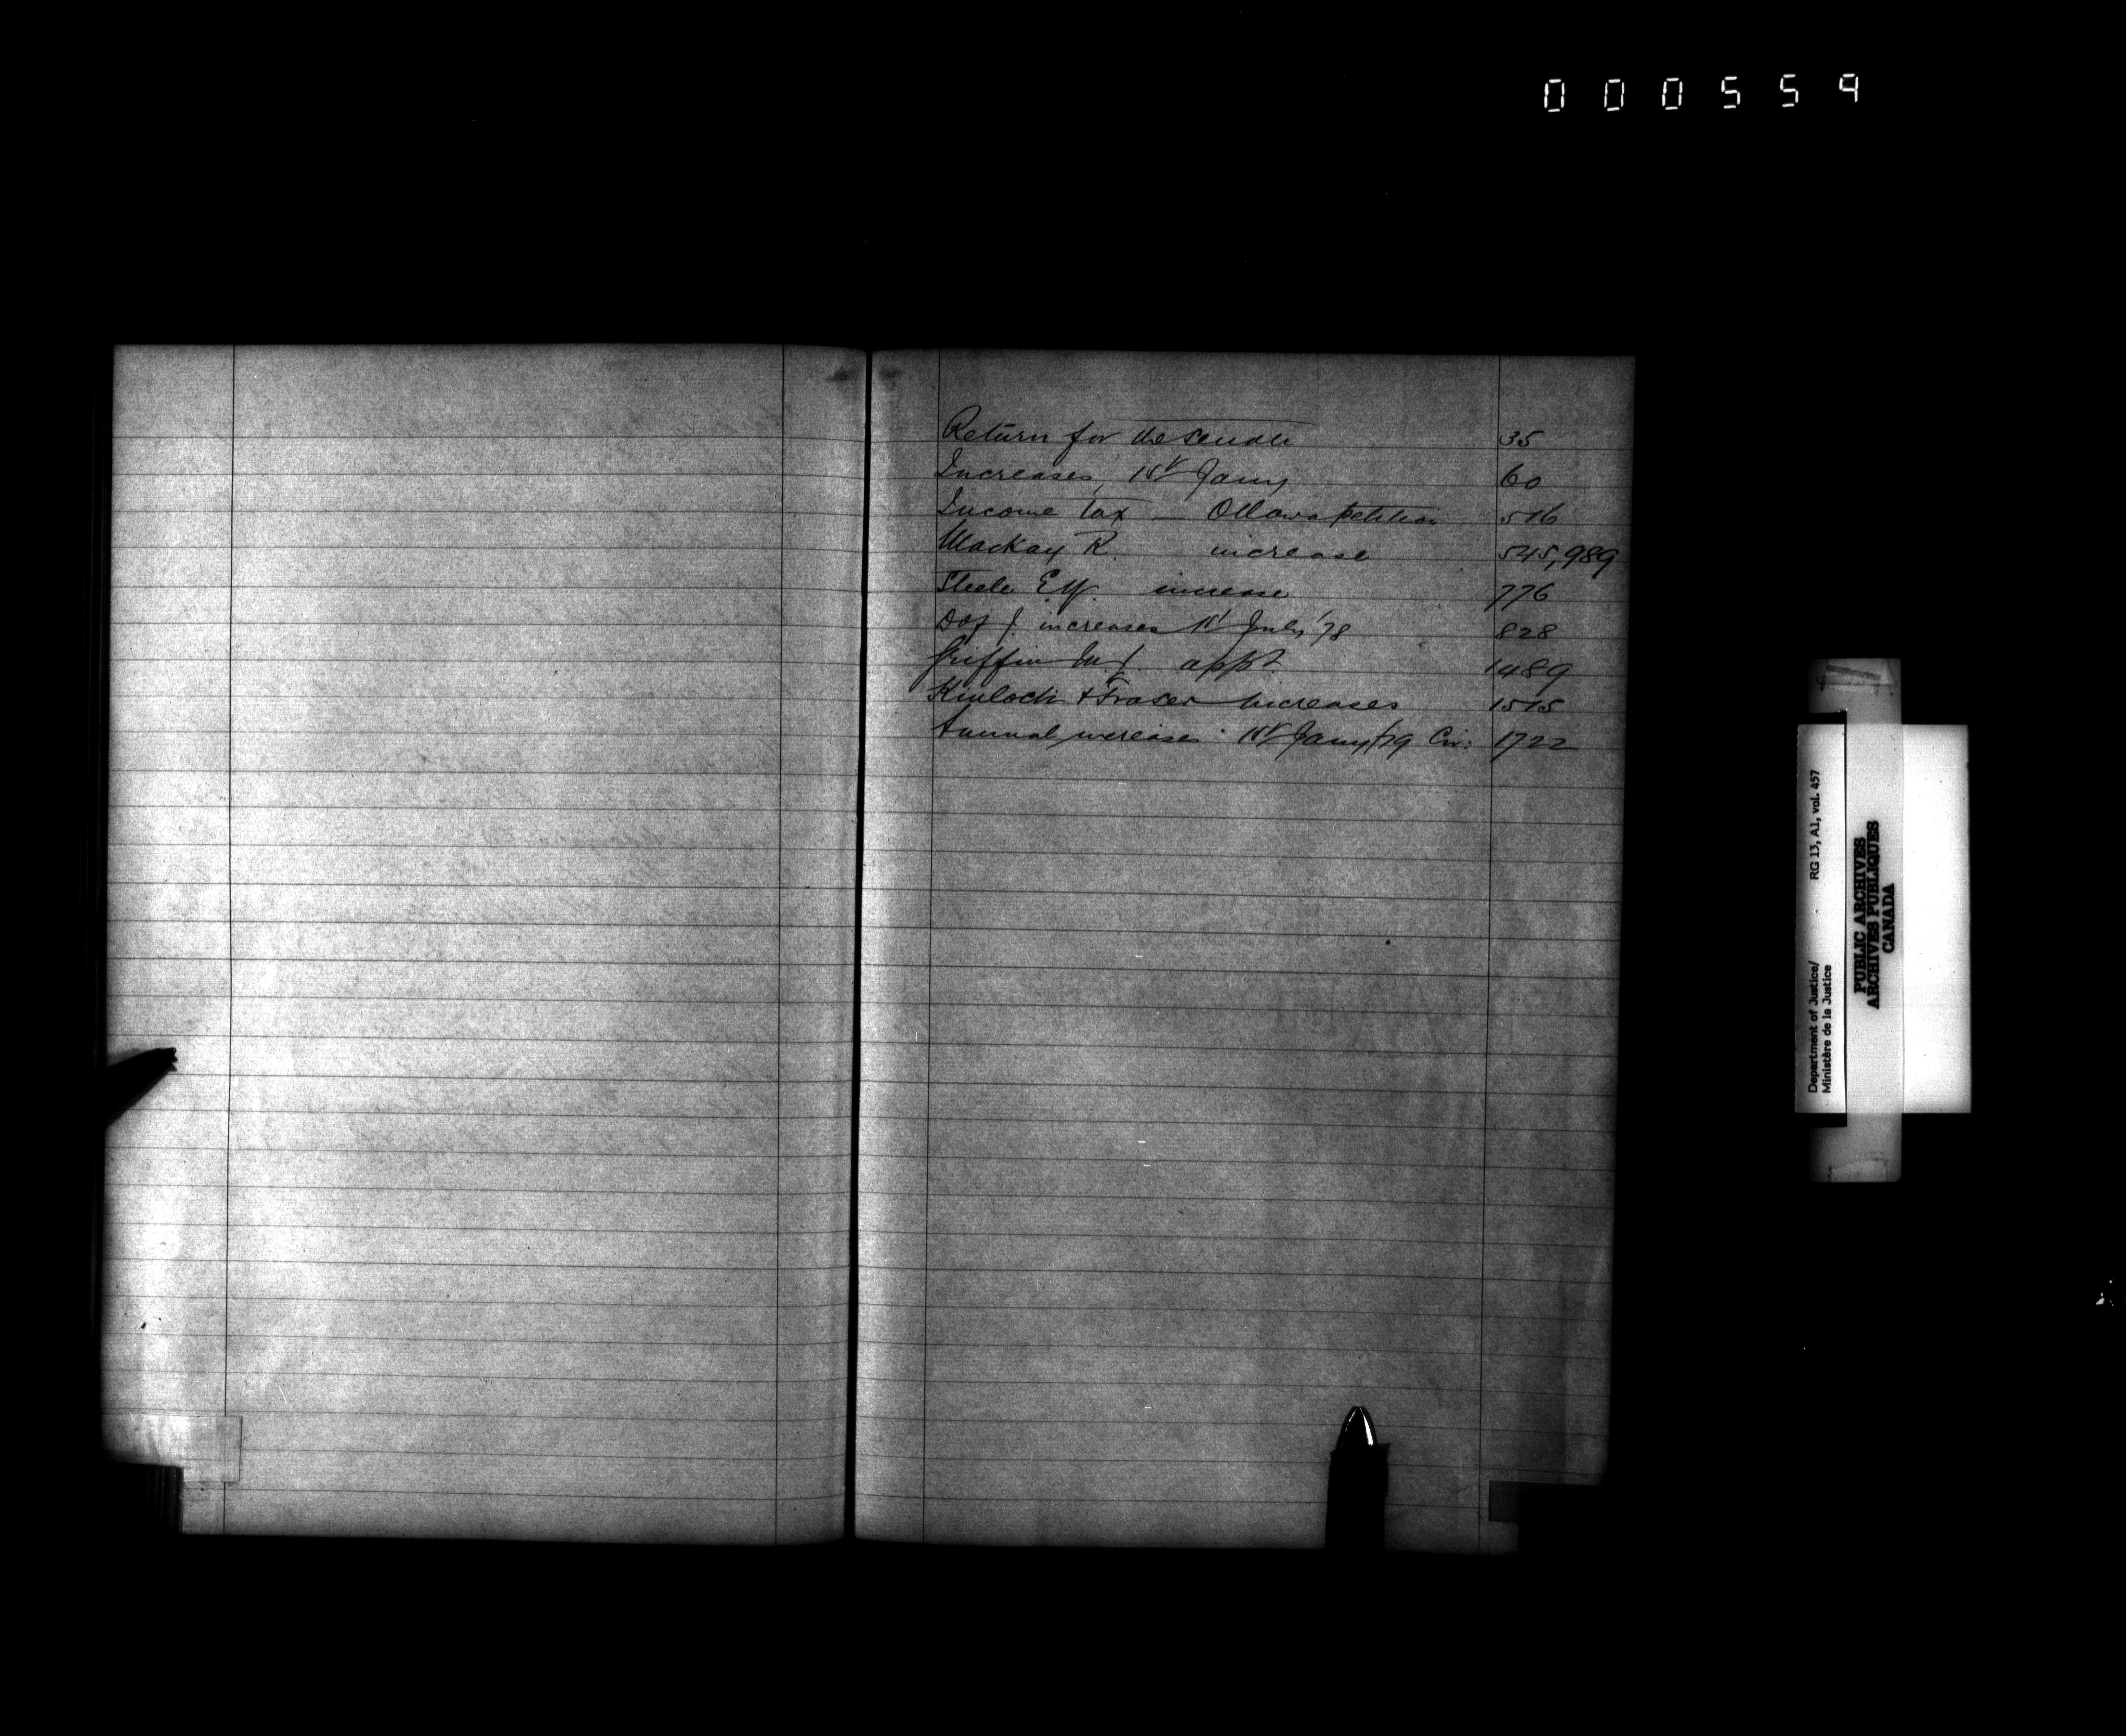 000559
Return for the Senate 35
Increases, 1st Jany 60
Income tax — Ottawa petition 516
Mackay R. increase 545,989
Steele increase 776
D of J. increases 1st July '78 828
Griffin appt. 1489
Kinloch + Fraser increases 1515
Annual increases 1st Jany /79 Cir: 1722
Department of Justice/ RG 13, A1, vol. 457
Ministère de la Justice
PUBLIC ARCHIVES
ARCHIVES PUBLIQUES
CANADA